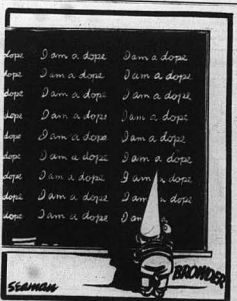 dope I am a dope I am a dope
dope I am a dope I am a dope
dope I am a dope I am a dope
dope I am a dope I am a dope
dope I am a dope I am a dope
dope I am a dope I am a dope
dope I am a dope I am a dope
dope I am a dope I am a dope
dope I am a dope I am
SEAMAN BROWDER